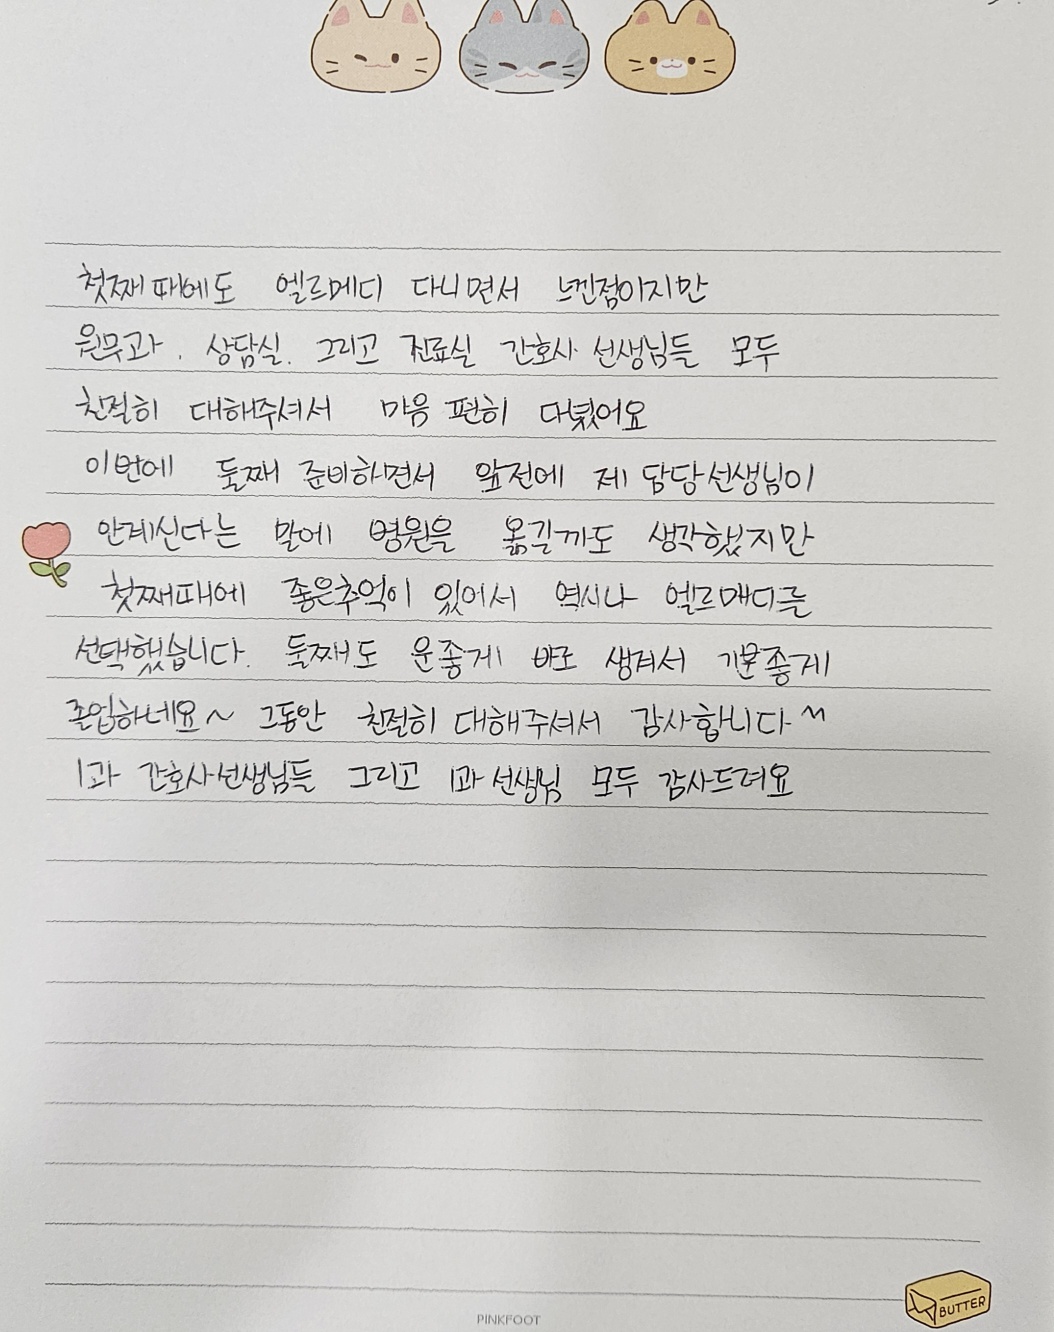 첫째때에도 엘르메디 다니면서 느낀점이지만
원무과, 상담실, 그리고 진료실 간호사 선생님들 모두
친절히 대해주셔서 마음 편히 다녔어요
이번에 둘째 준비하면서 앞전에 제 담당선생님이
안계신다는 말에 병원을 옮길까도 생각했지만
첫째때에 좋은추억이 있어서 역시나 엘르메디를
선택했습니다. 둘째도 운좋게 바로 생겨서 기분좋게
졸업하네요~ 그동안 친절히 대해주셔서 감사합니다^^
1과 간호사선생님들 그리고 1과 선생님 모두 감사드려요
PINKFOOT
BUTTER